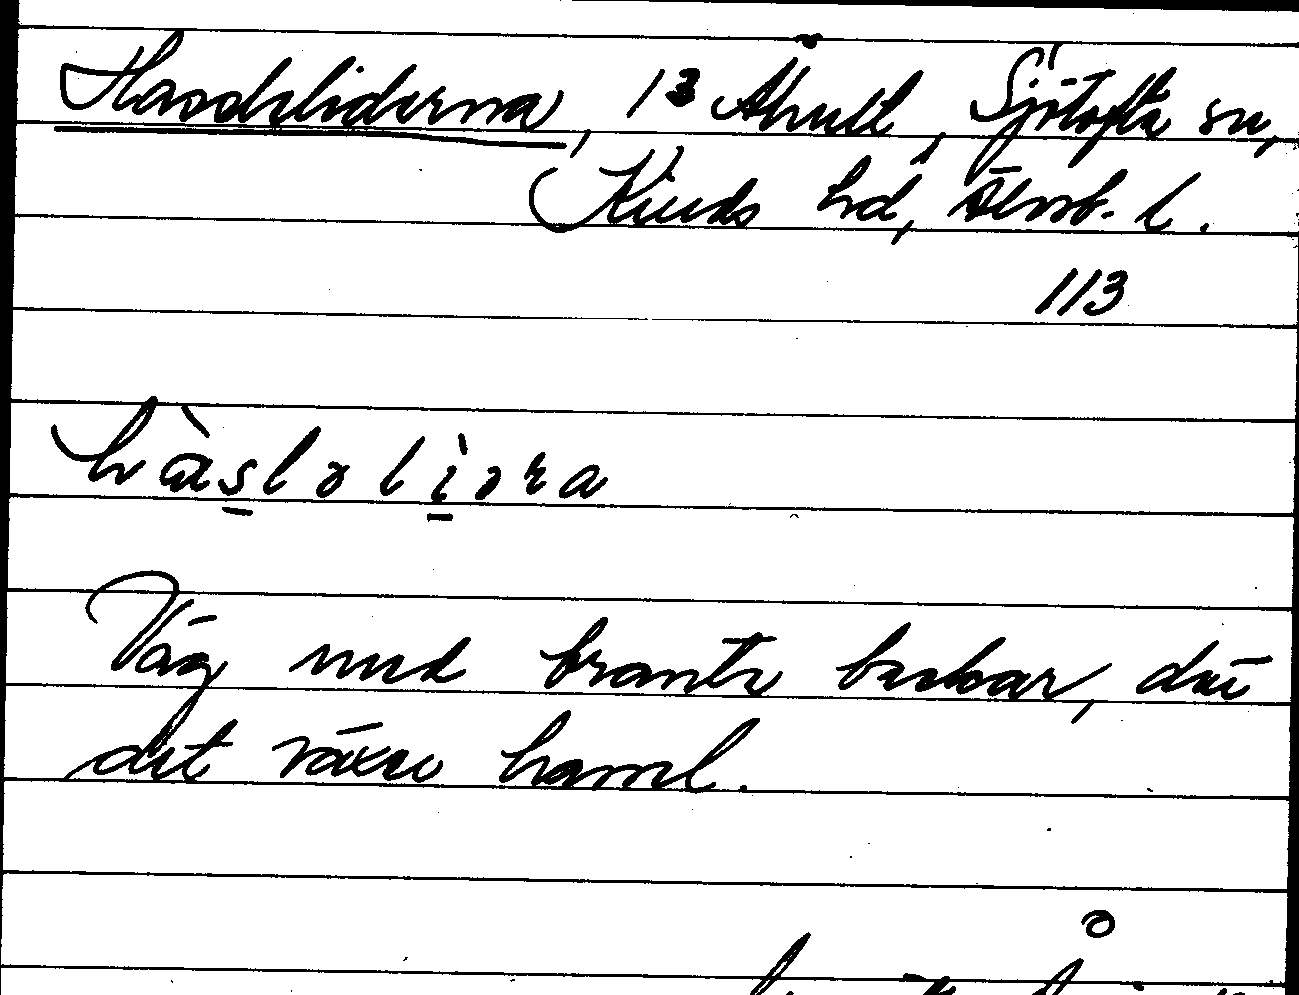 Hasseliderna, 13 Åhult, Sjötofta sn,
Kinds hd, Älvsb. l.
113
hàsloliɔra
Väg med branta backar, där
det växer hassel.